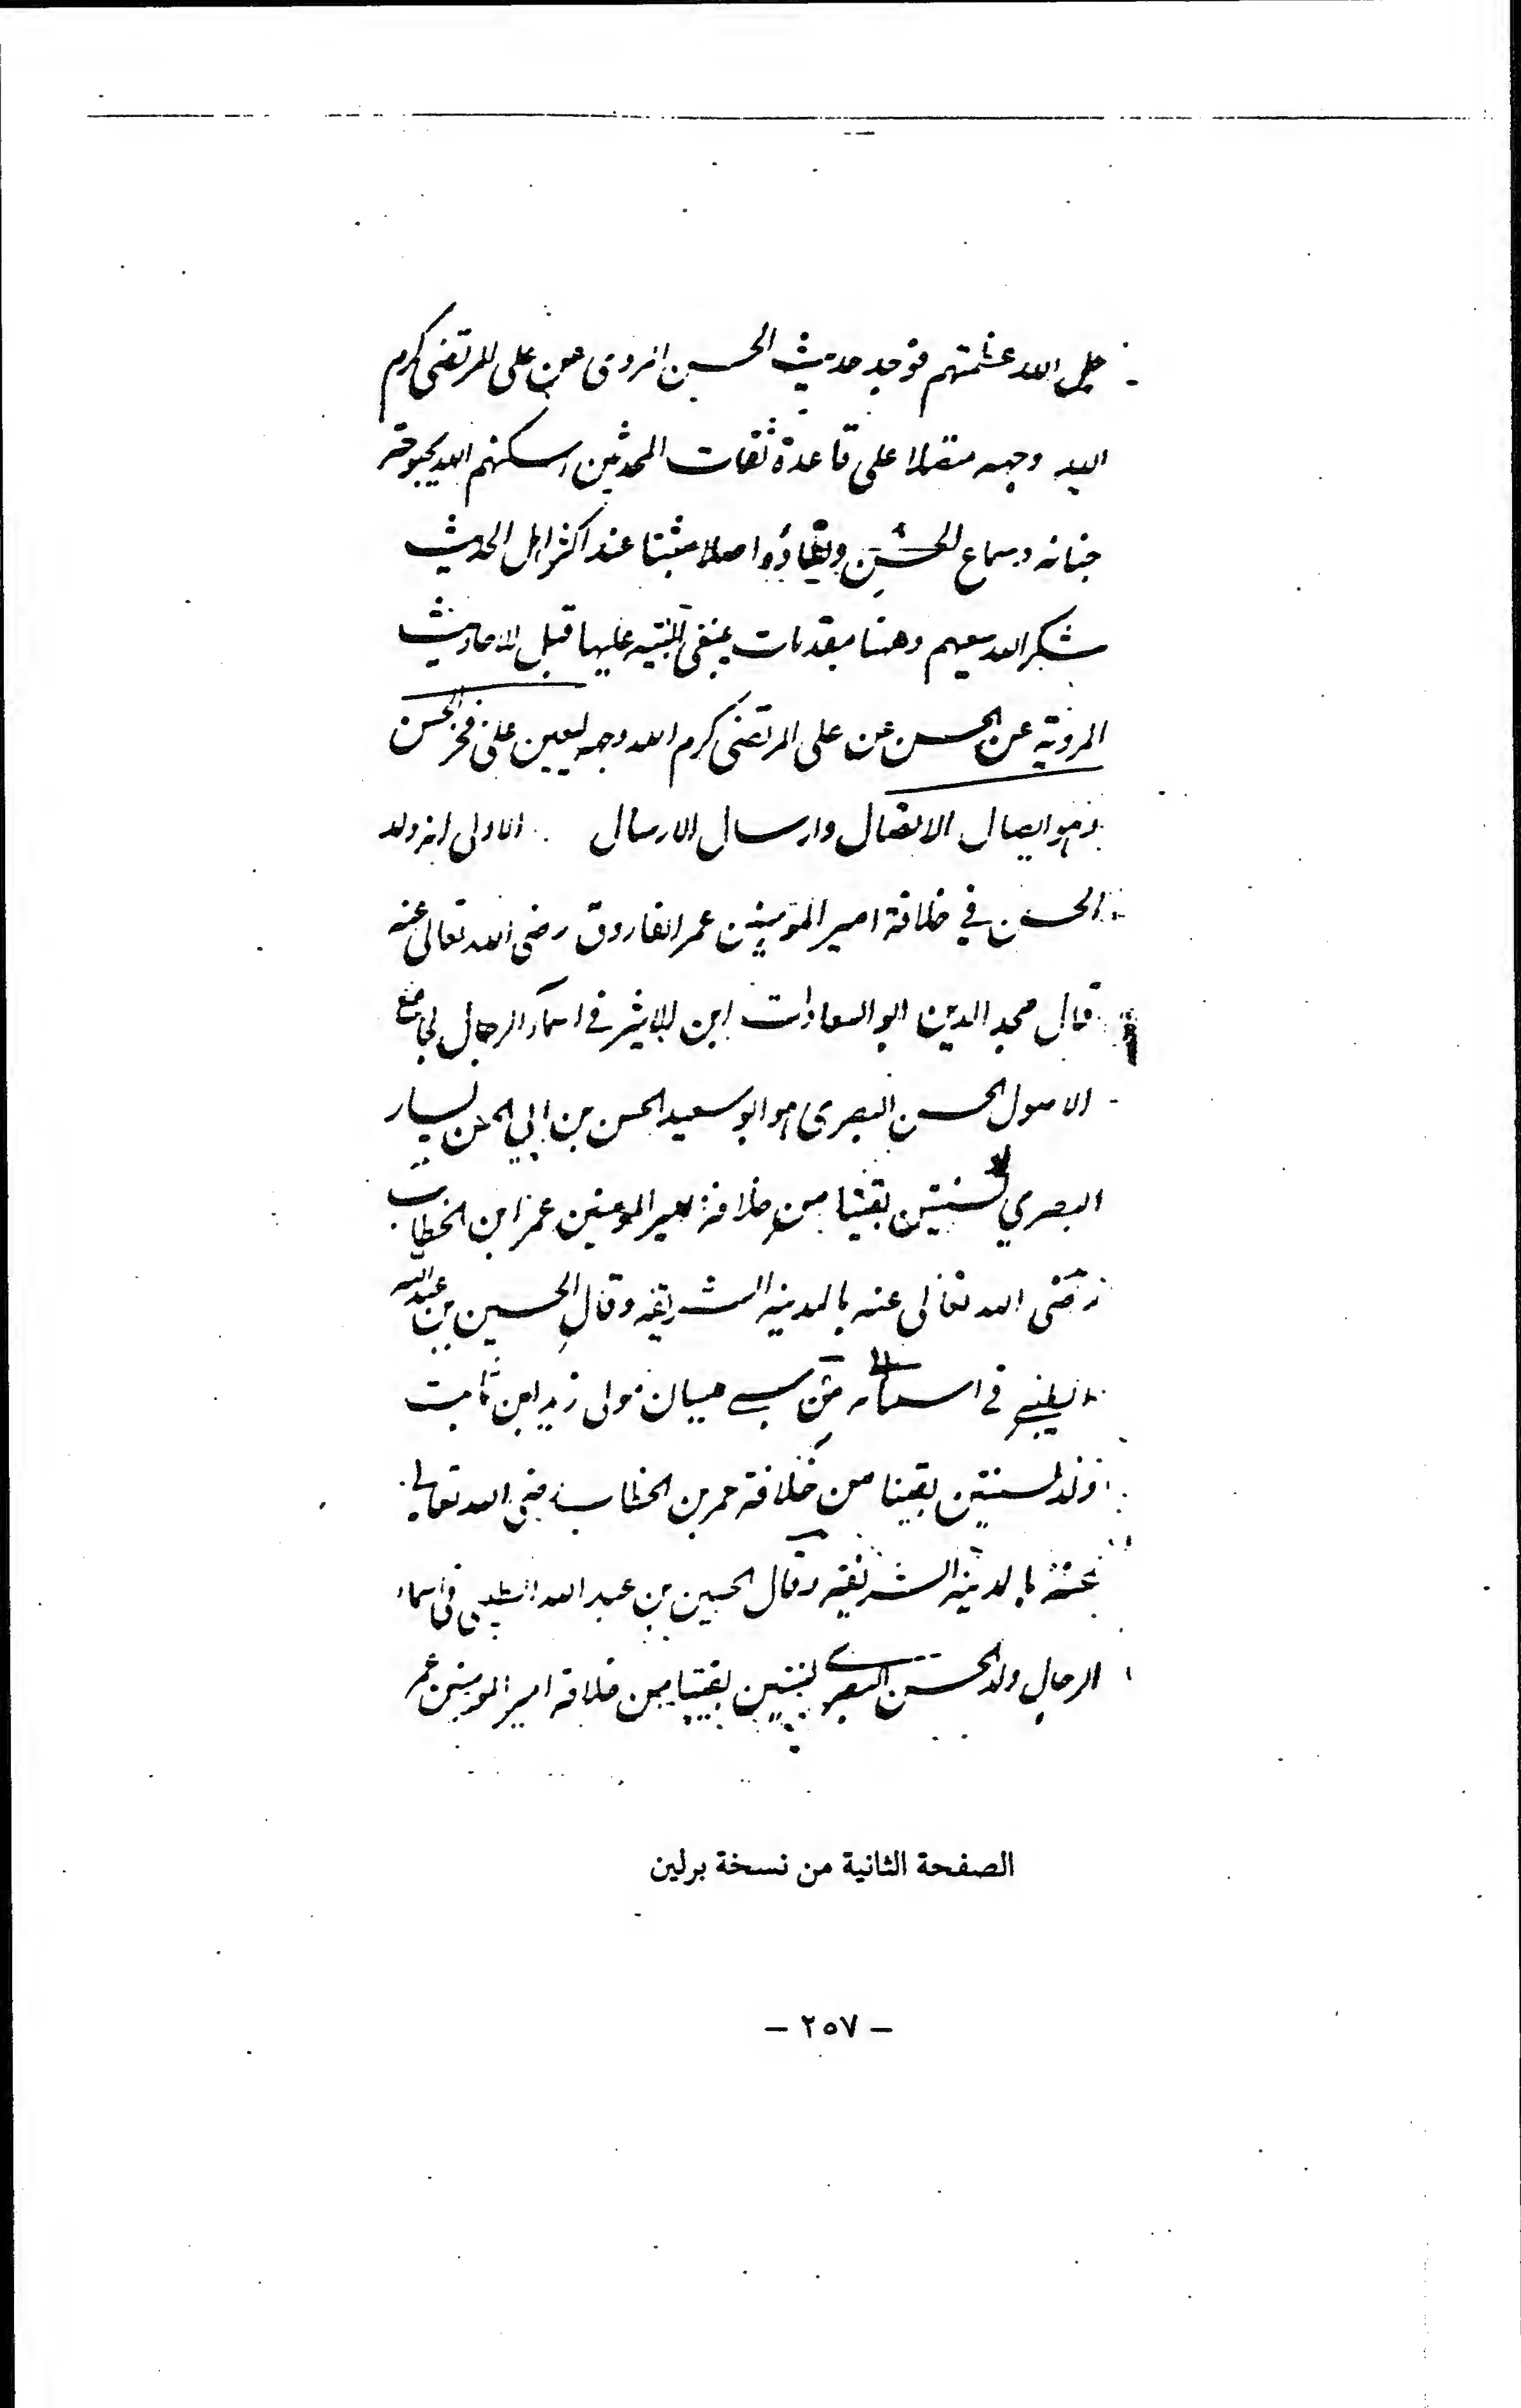 الله عظمتهم فوجد حديث الحسن المروى عن على المرتضى كرم
الله وجهه متصلا على قاعدة ثقات المحدثين اسكنهم الله بحبوحة
جنانه وسماع الحسن ولقاؤه اصلا مثبتا عند اكثر اهل الحديث
شكر الله سعيهم وههنا مقدمات ينبغى التنبيه عليها قبل الاحاديث
المروية عن الحسن عن على المرتضى كرم الله وجهه ليعين على فخر الحسن
وهو ايصال الاتصال وارسال الارسال الاولى انه ولد
الحسن في خلافة امير المؤمنين عمر الفاروق رضى الله تعالى عنه
قال مجد الدين ابو السعادات ابن الاثير في اسماء الرجال لجامع
الاصول الحسن البصرى هو ابو سعيد الحسن بن ابي الحسن يسار
البصري لسنتين بقيتا من خلافة امير المومنين عمر ابن الخطاب
رضى الله تعالى عنه بالمدينة الشريفة وقال الحسين بن عبد الله
الطيبي في اسمائه من سبي ميسان مولى زيد ابن ثابت
ولد لسنتين بقيتا من خلافة عمر بن الخطاب رضى الله تعالى
عنه بالمدينة الشريفة وقال الحسين بن عبد الله الطيبي في اسماء
الرجال ولد الحسن البصرى لسنتين بقيتا من خلافة امير المومنين عمر
الصفحة الثانية من نسخة برلين
– ٢٥٧ –